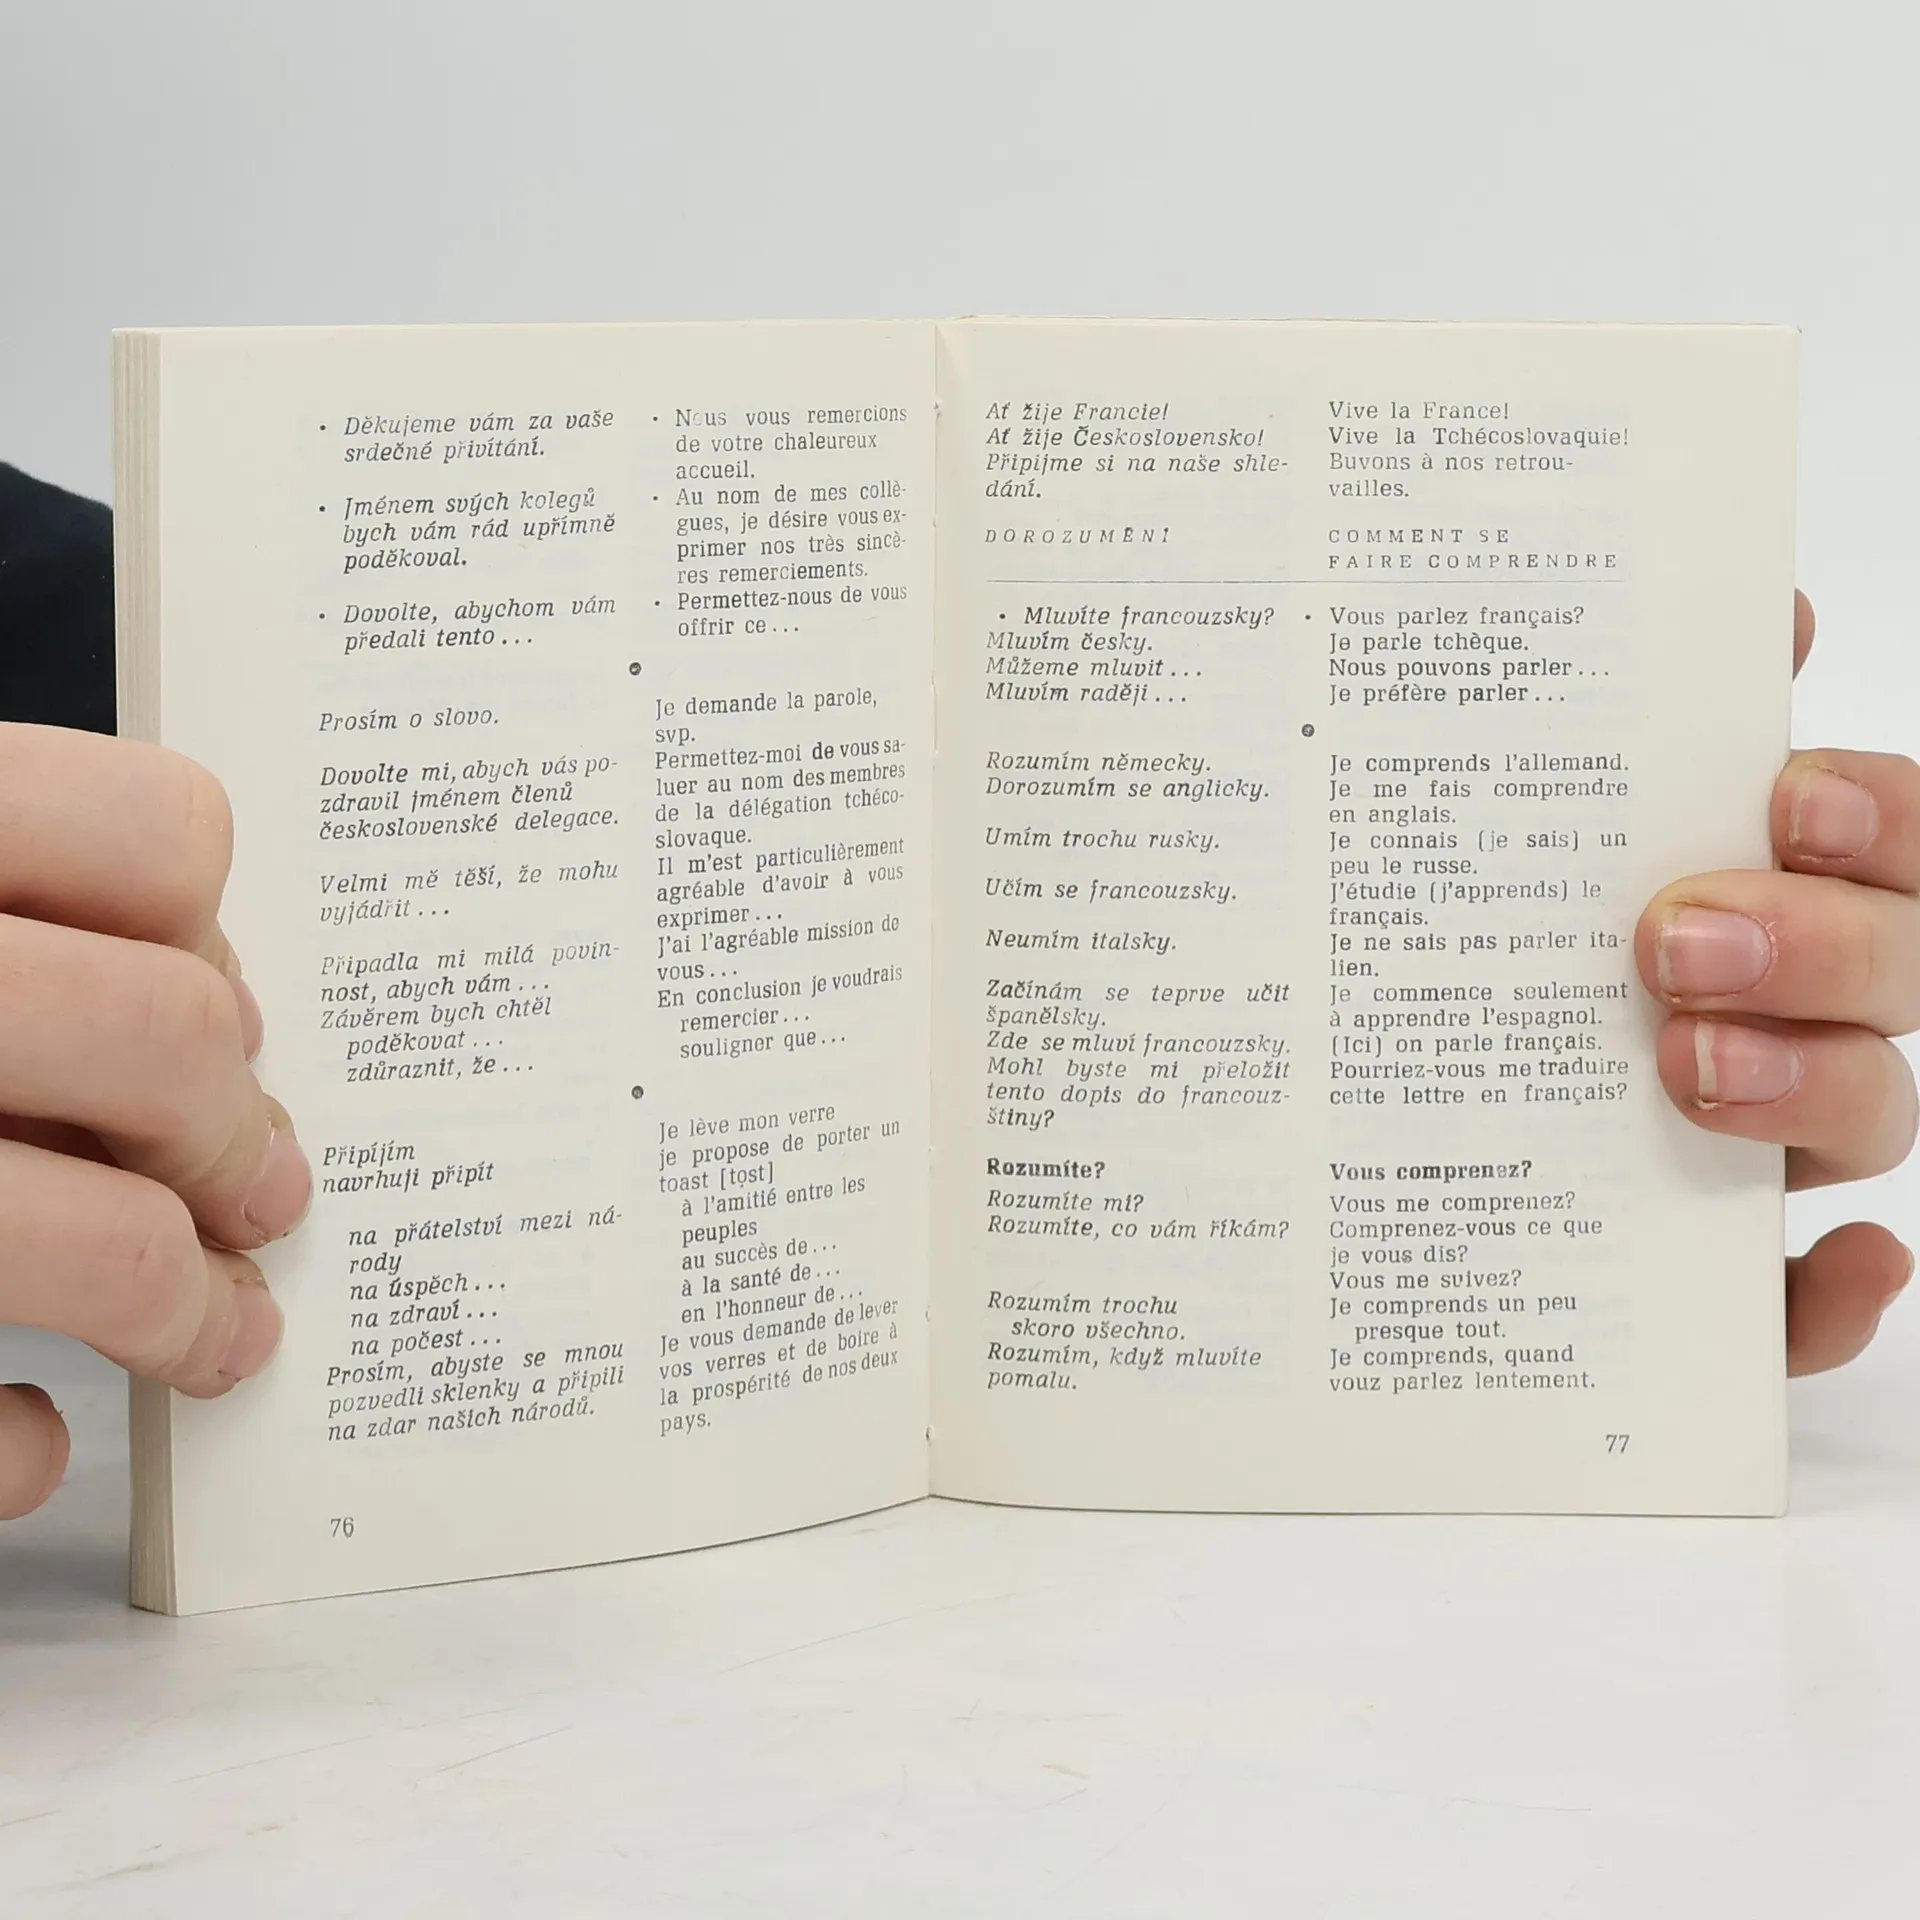 • Děkujeme vám za vaše
srdečné přivítání.
• Jménem svých kolegů
bych vám rád upřímně
poděkoval.
• Dovolte, abychom vám
předali tento...
Prosím o slovo.
Dovolte mi, abych vás po-
zdravil jménem členů
československé delegace.
Velmi mě těší, že mohu
vyjádřit...
Připadla mi milá povin-
nost, abych vám...
Závěrem bych chtěl
poděkovat...
zdůraznit, že...
Připíjím
navrhuji připít
na přátelství mezi ná-
rody
na úspěch...
na zdraví...
na počest...
Prosím, abyste se mnou
pozvedli sklenky a připili
na zdar našich národů.
76
• Nous vous remercions
de votre chaleureux
accueil.
• Au nom de mes collè-
gues, je désire vous ex-
primer nos très sincè-
res remerciements.
• Permettez-nous de vous
offrir ce...
Je demande la parole,
svp.
Permettez-moi de vous sa-
luer au nom des membres
de la délégation tchéco-
slovaque.
Il m'est particulièrement
agréable d'avoir à vous
exprimer...
J'ai l'agréable mission de
vous...
En conclusion je voudrais
remercier...
souligner que...
Je lève mon verre
je propose de porter un
toast [tọst]
à l'amitié entre les
peuples
au succès de...
à la santé de...
en l'honneur de...
Je vous demande de lever
vos verres et de boire à
la prospérité de nos deux
pays.
Ať žije Francie!
Ať žije Československo!
Připijme si na naše shle-
dání.
DOROZUMĚNÍ
• Mluvíte francouzsky?
Mluvím česky.
Můžeme mluvit...
Mluvím raději...
Rozumím německy.
Dorozumím se anglicky.
Umím trochu rusky.
Učím se francouzsky.
Neumím italsky.
Začínám se teprve učit
španělsky.
Zde se mluví francouzsky.
Mohl byste mi přeložit
tento dopis do francouz-
štiny?
Rozumíte?
Rozumíte mi?
Rozumíte, co vám říkám?
Rozumím trochu
skoro všechno.
Rozumím, když mluvíte
pomalu.
Vive la France!
Vive la Tchécoslovaquie!
Buvons à nos retrou-
vailles.
COMMENT SE
FAIRE COMPRENDRE
• Vous parlez français?
Je parle tchèque.
Nous pouvons parler...
Je préfère parler...
Je comprends l'allemand.
Je me fais comprendre
en anglais.
Je connais (je sais) un
peu le russe.
J'étudie (j'apprends) le
français.
Je ne sais pas parler ita-
lien.
Je commence seulement
à apprendre l'espagnol.
(Ici) on parle français.
Pourriez-vous me traduire
cette lettre en français?
Vous comprenez?
Vous me comprenez?
Comprenez-vous ce que
je vous dis?
Vous me suivez?
Je comprends un peu
presque tout.
Je comprends, quand
vouz parlez lentement.
77